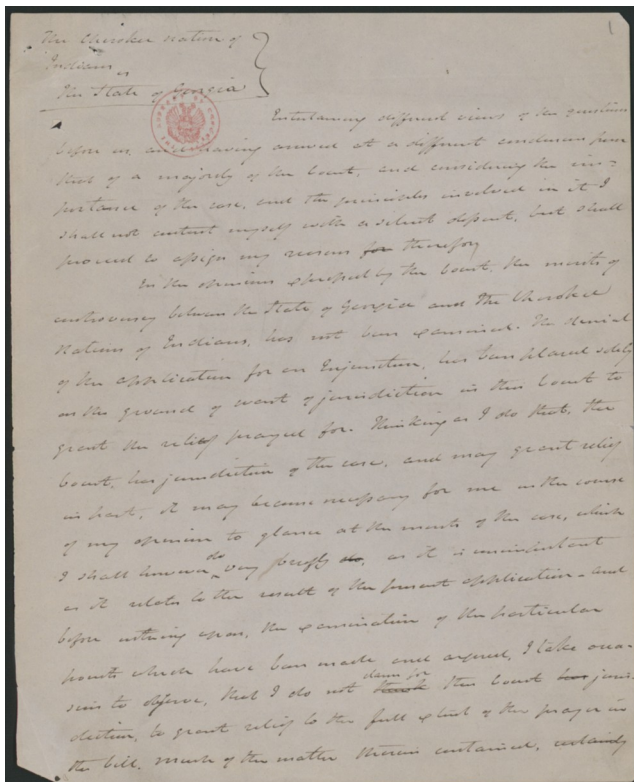 The Cherokee Nation of
Indians
vs
The State of Georgia
1
Entertaining different views of the questions
before us, and having arrived at a different conclusion from
that of a majority of the Court, and considering the im=
portance of the case, and the principles involved in it I
shall not content myself with a silent dissent, but shall
proceed to assign my reasons for therefor
In the opinion expressed by the Court, the merits of
controversy between the State of Georgia and the Cherokee
Nations of Indians, has not been examined. The denial
of the application for an Injunction, has been placed solely
on the ground of want of jurisdiction in this Court to
grant the relief prayed for. Thinking as I do that, the
Court, has jurisdiction of the case, and may grant relief
in part, it may become necessary for me in the course
of my opinion to glance at the merits of the case, which
I shall however do very briefly do, as it is unimportant
as it relates to the result of the present application - and
before entering upon, the examination of the particular
points which have been made and argued, I take occa-
sion to observe, that I do not think claim for this Court has juris
diction, to grant relief to the full extent of the prayer in
the bill. Much of the matter therein contained, certainly